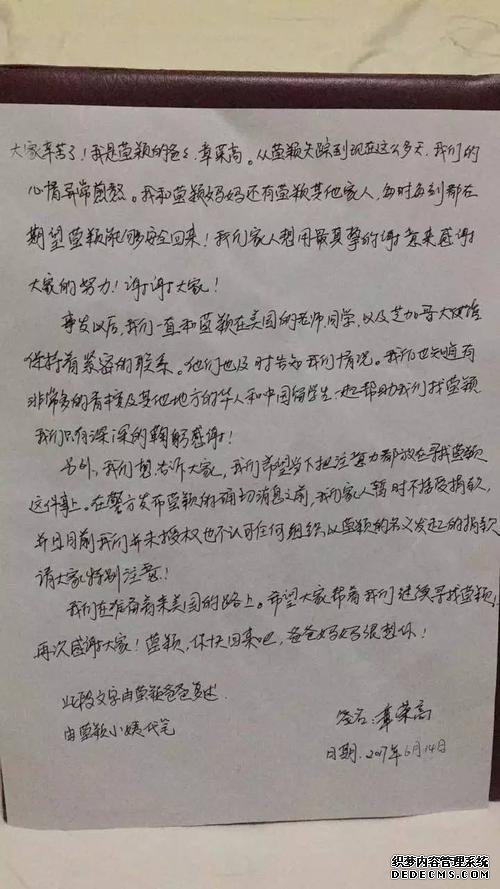 大家辛苦了！我是莹颖的爸爸，章荣高。从莹颖失踪到现在这么多天，我们的
心情异常煎熬。我和莹颖妈妈还有莹颖其他家人，每时每刻都在
期望莹颖能够安全回来！我们家人想用最真挚的谢意来感谢
大家的努力！谢谢大家！
事发以后，我们一直和莹颖在美国的老师，同学，以及芝加哥大使馆
保持着紧密的联系。他们也及时告知我们情况。我们也知道有
非常多的香槟及其他地方的华人和中国留学生一起帮助我们找莹颖
我们只有深深的鞠躬感谢！
另外，我们想告诉大家，我们希望当下把注意力都放在寻找莹颖
这件事上。在警方发布莹颖的确切消息之前，我们家人暂时不接受捐款，
并且目前我们并未授权也不认可任何组织以莹颖的名义发起的捐款
请大家特别注意！
我们在准备着来美国的路上。希望大家帮着我们继续寻找莹颖，
再次感谢大家！莹颖，你快回来吧，爸爸妈妈很想你！
此段文字由莹颖爸爸口述
由莹颖小姨代笔
签名：章荣高
日期：2017年6月14日
织梦内容管理系统
DEDECMS.COM